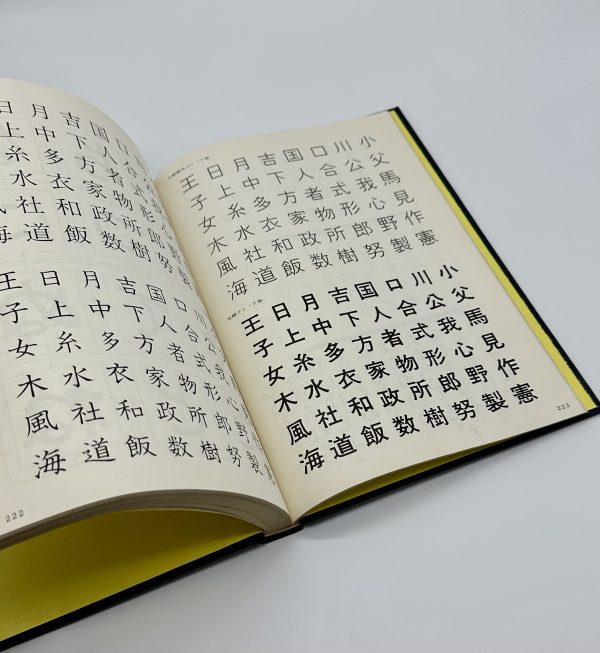 日月吉国口
上中下人合
糸多方者式
水衣家物形
社和政所郎
海道飯数樹努
王日月吉国口川
子上中下人合公
女糸多方者式我
木水衣家物形心
風社和政所郎野
海道飯数樹努製憲
222
王日月吉国口川小
子上中下人合公父
女糸多方者式我馬
木水衣家物形心見
風社和政所郎野作
海道飯数樹努製憲
王日月吉国口川小
子上中下人合公父
女糸多方者式我馬
木水衣家物形心見
風社和政所郎野作
海道飯数樹努製憲
223